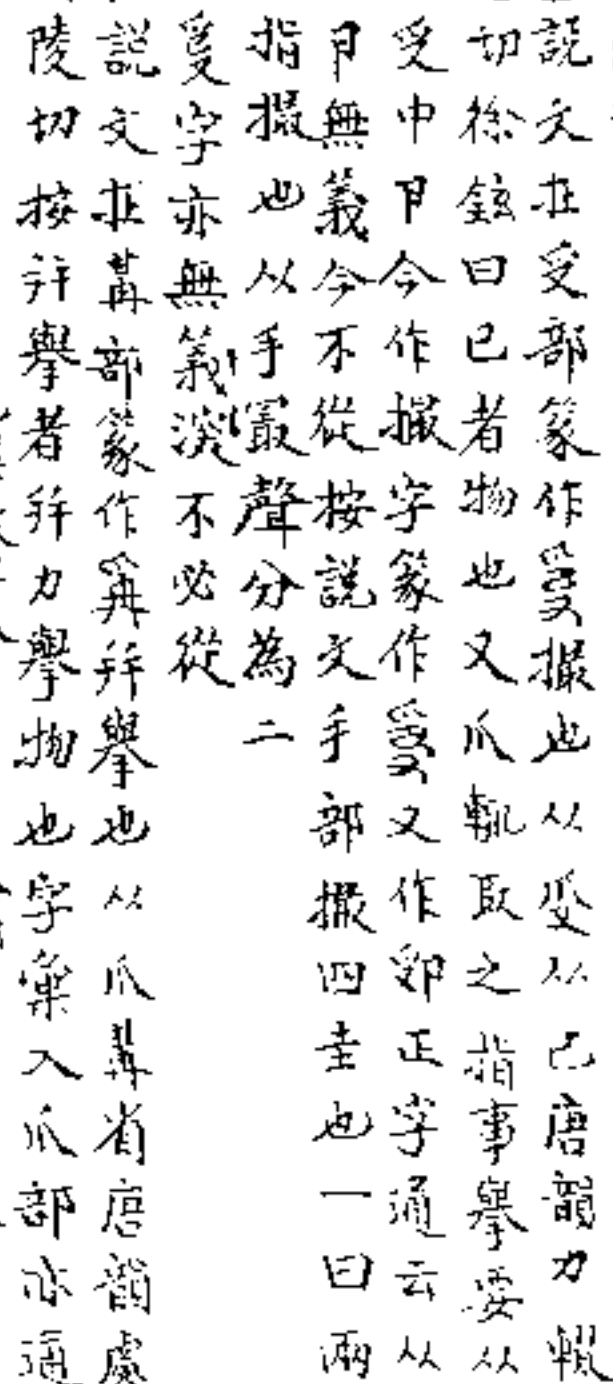 説文在𠬪部篆作𤔍撮也从𠬪从己唐韻力輟
切徐鉉曰已者物也又爪㧗取之指事舉要从
受中𠕁今作撮字篆作𤔍又作𨚍正字通云从
𠕁無義今不從按説文手部撮四圭也一曰兩
指撮也从手最聲分為二
𤔍字亦無義淡不必從
説文在冓部篆作爯幷舉也从爪冓省唐韻處
陵切按幷舉者幷力舉物也字彙入爪部亦通